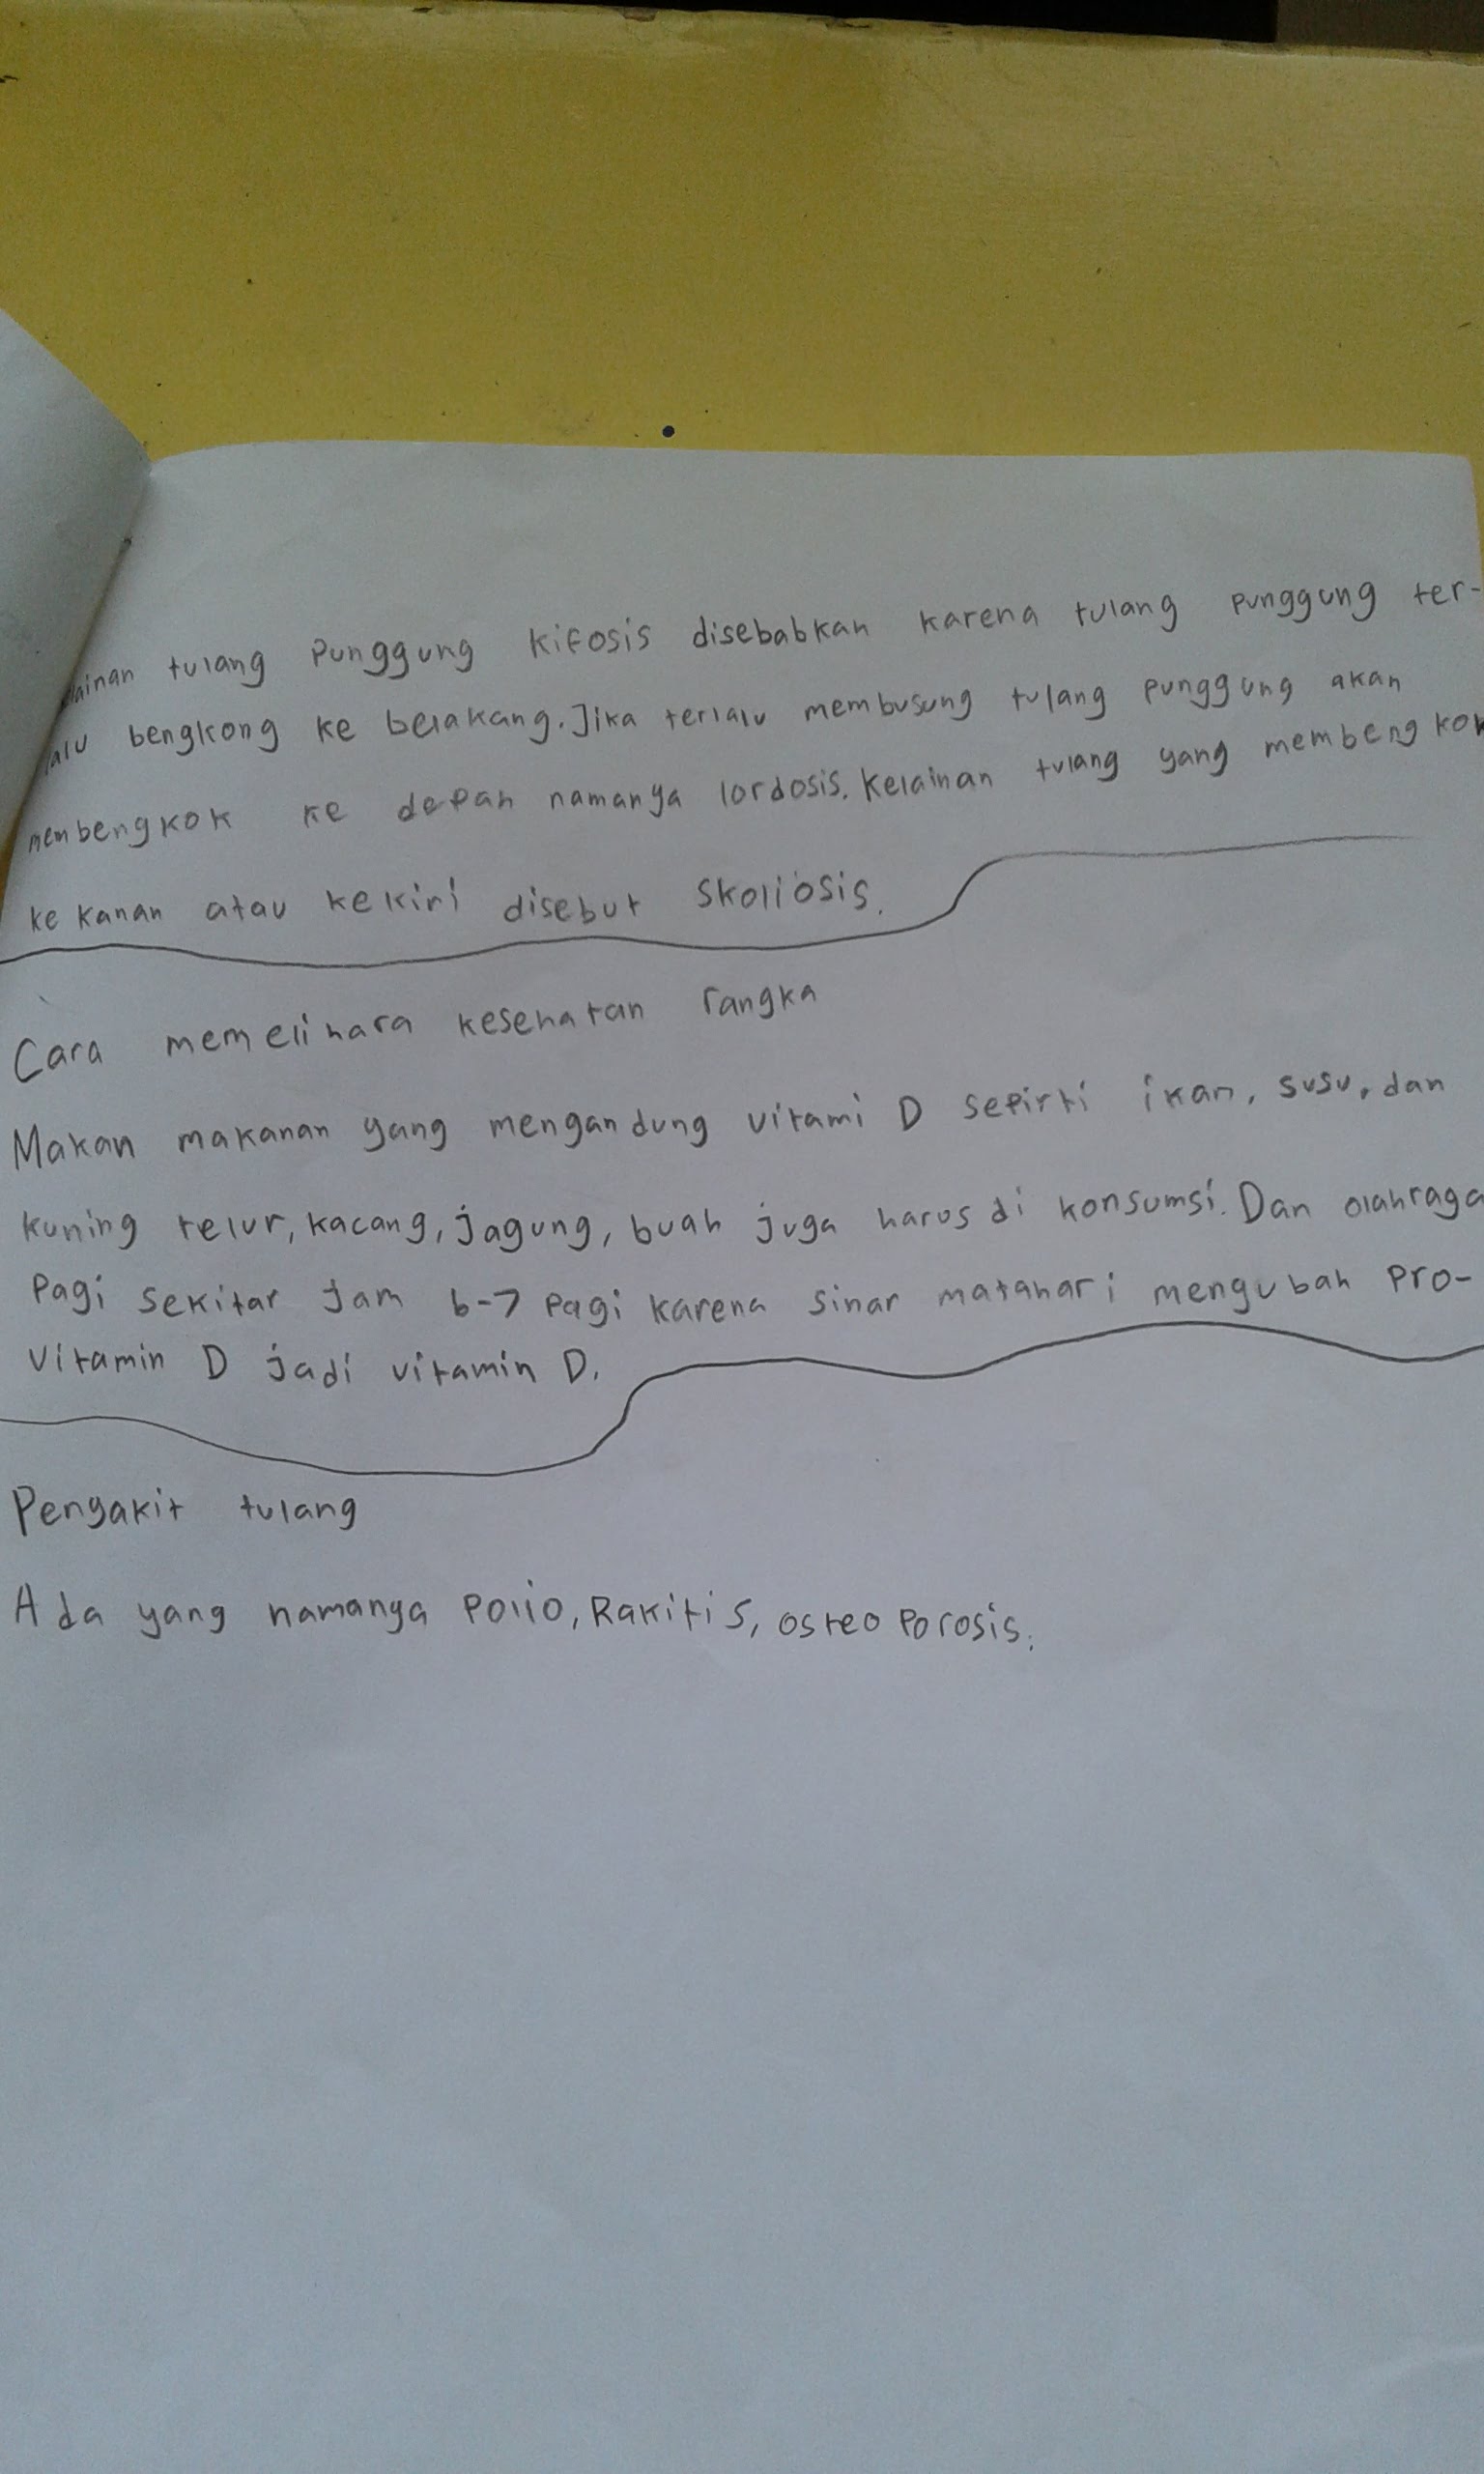 lainan tulang punggung kifosis disebabkan karena tulang punggung ter-
lalu bengkong ke belakang. Jika terlalu membusung tulang punggung akan
membengkok ke depan namanya lordosis. Kelainan tulang yang membengkok
ke kanan atau kekiri disebut skoliosis.
Cara memelihara kesehatan rangka
Makan makanan yang mengandung vitami D sepirti ikan, susu, dan
kuning telur, kacang, jagung, buah juga harus di konsumsi. Dan olahraga
Pagi sekitar jam 6-7 pagi karena sinar matahari mengubah pro-
vitamin D jadi vitamin D.
Pengakit tulang
Ada yang namanya polio, Rakitis, osteoporosis.